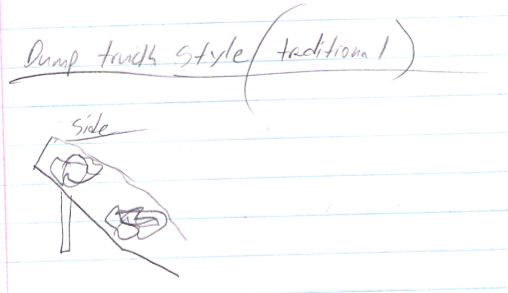 Dump truck style (traditional)
Side